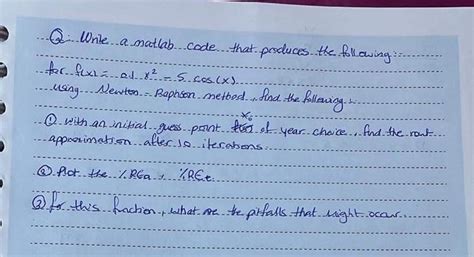 Q Write a matlab code that produces the following:-
for f(x) = 0.1 x² - 5 cos(x)
using Newton-Raphson method, find the following:
① with an initial guess point x₀ of year choice, find the rout
approximation after 10 iterations
② Plot the %REa, %REt
③ for this function, what are the pitfalls that might occur